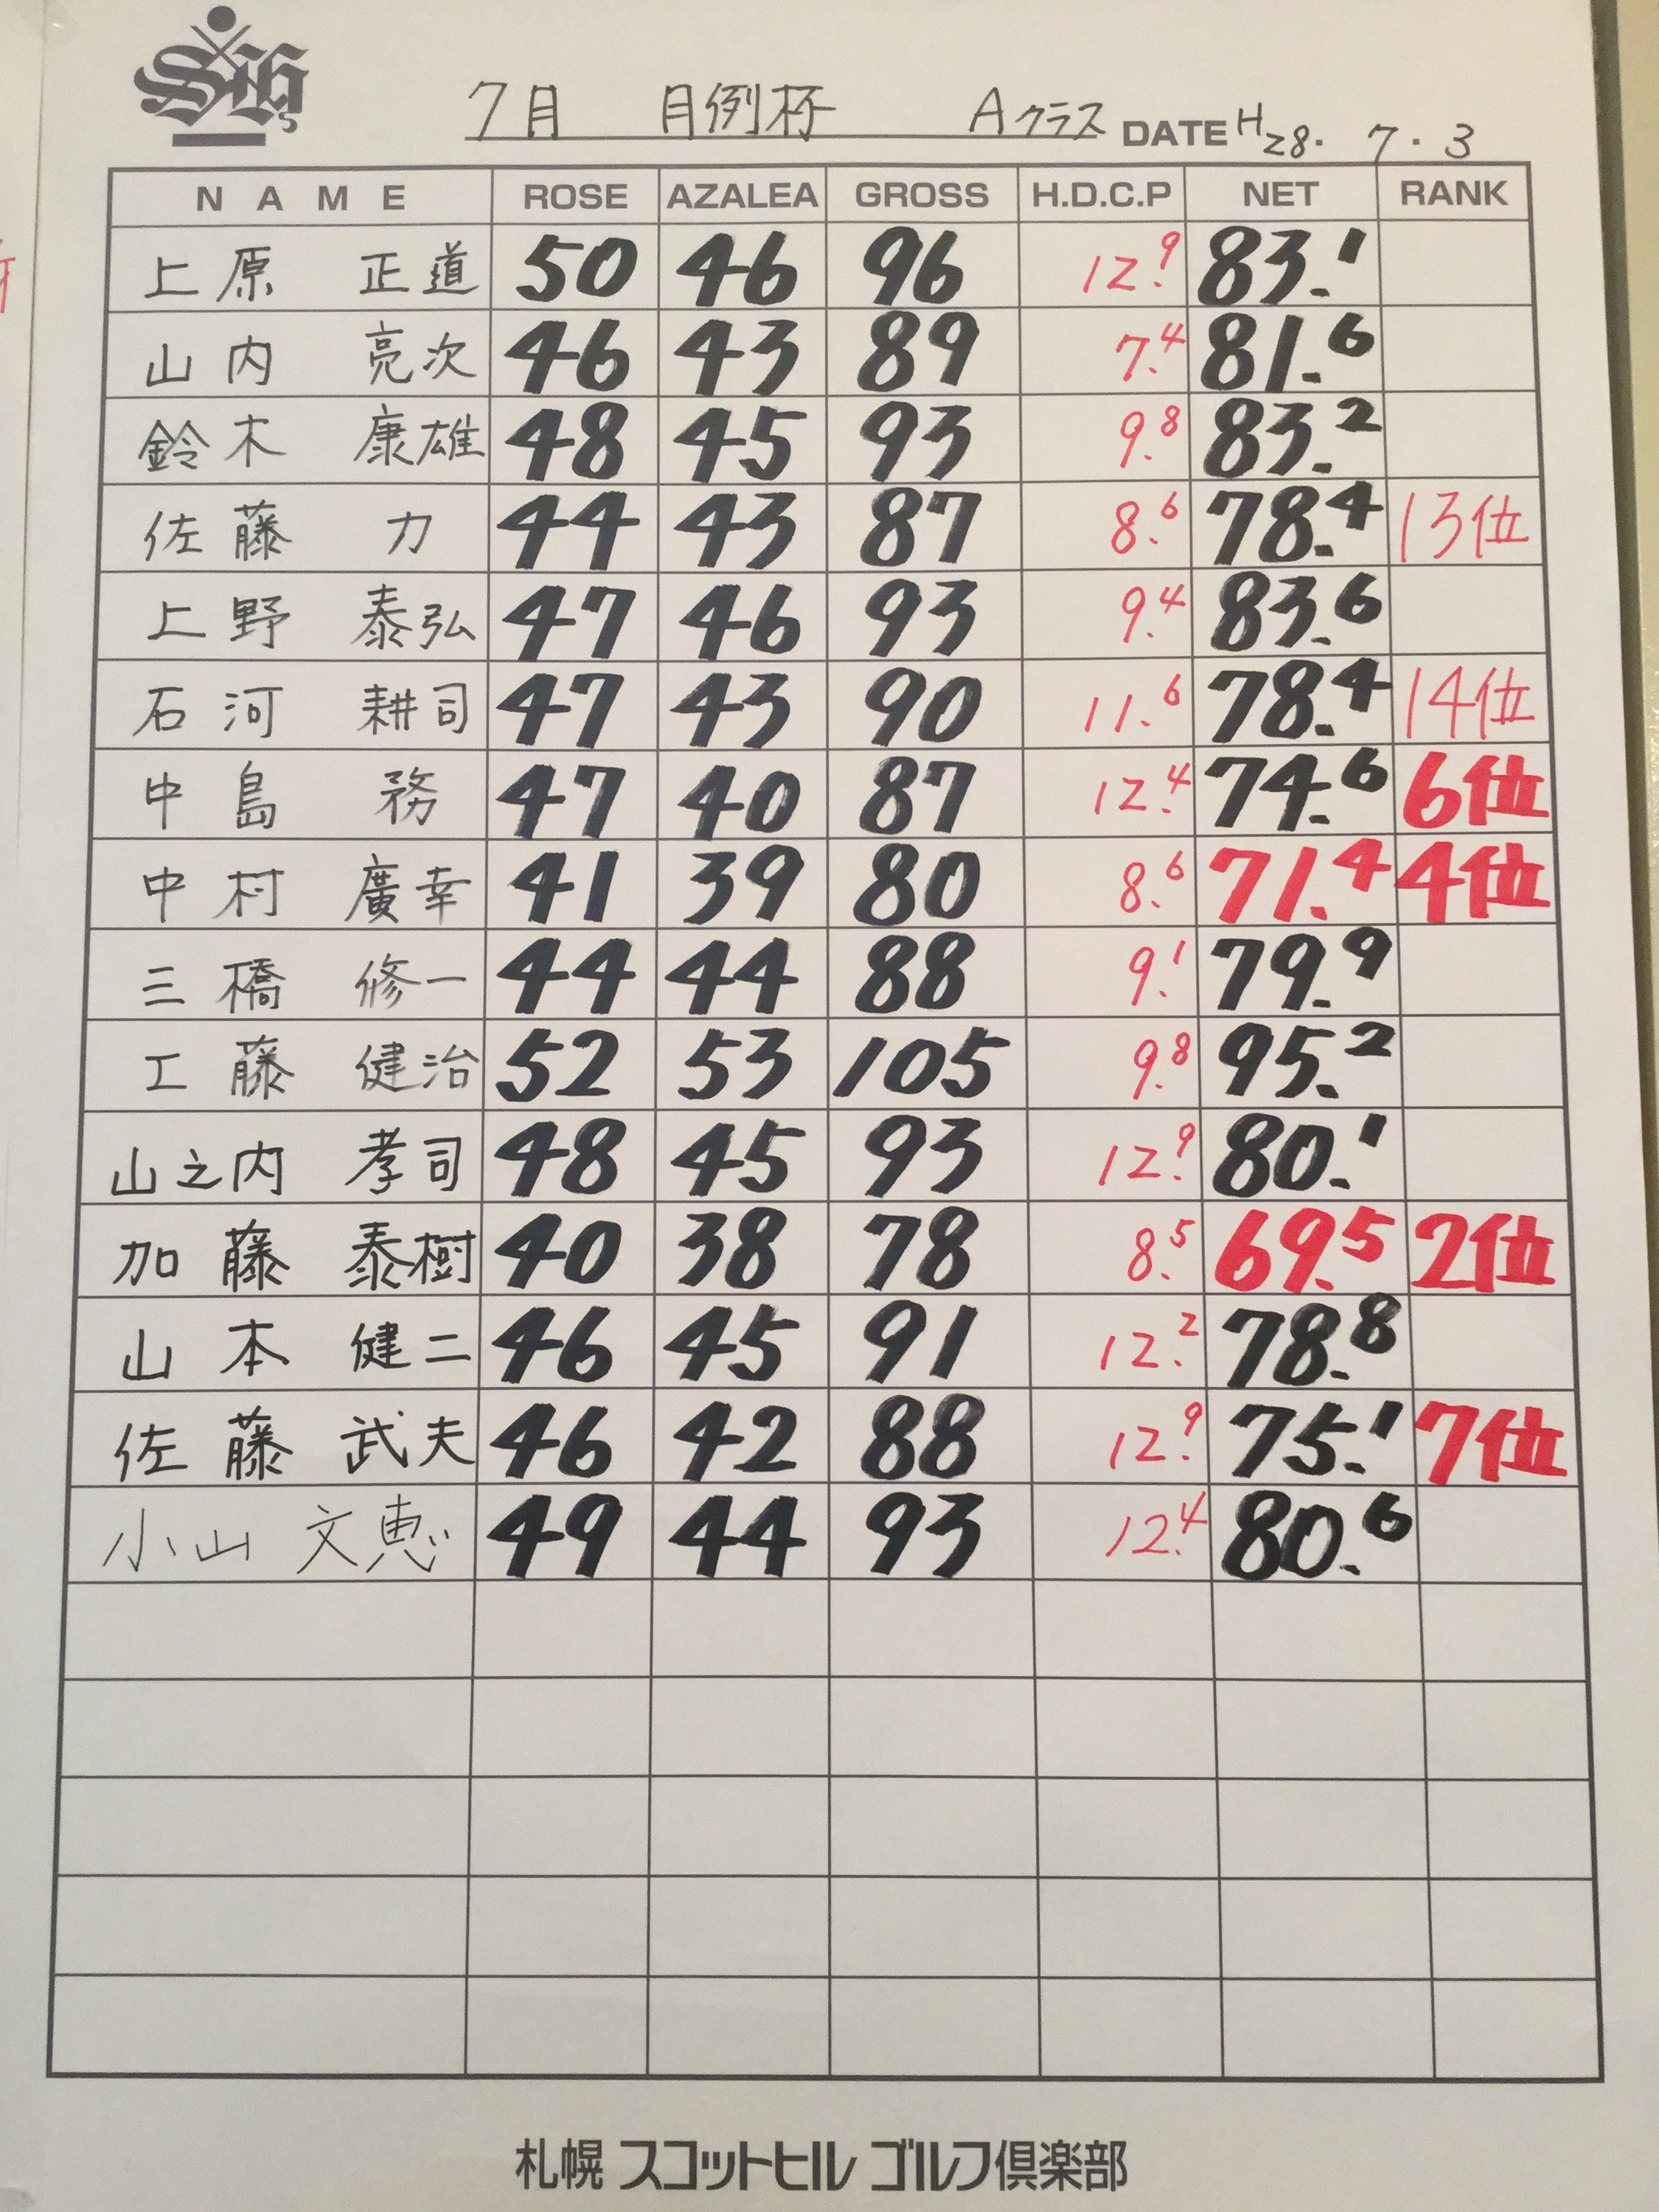 SHS
7月 月例杯 Aクラス DATE H28. 7. 3
NAME ROSE AZALEA GROSS H.D.C.P NET RANK
上原 正道 50 46 96 12.9 83.1
山内 亮次 46 43 89 7.4 81.6
鈴木 康雄 48 45 93 9.8 83.2
佐藤 力 44 43 87 8.6 78.4 13位
上野 泰弘 47 46 93 9.4 83.6
石河 耕司 47 43 90 11.6 78.4 14位
中島 務 47 40 87 12.4 74.6 6位
中村 廣幸 41 39 80 8.6 71.4 4位
三橋 修一 44 44 88 9.1 79.9
工藤 健治 52 53 105 9.8 95.2
山之内 孝司 48 45 93 12.9 80.1
加藤 泰樹 40 38 78 8.5 69.5 2位
山本 健二 46 45 91 12.2 78.8
佐藤 武夫 46 42 88 12.9 75.1 7位
小山 文恵 49 44 93 12.4 80.6
札幌 スコットヒル ゴルフ倶楽部